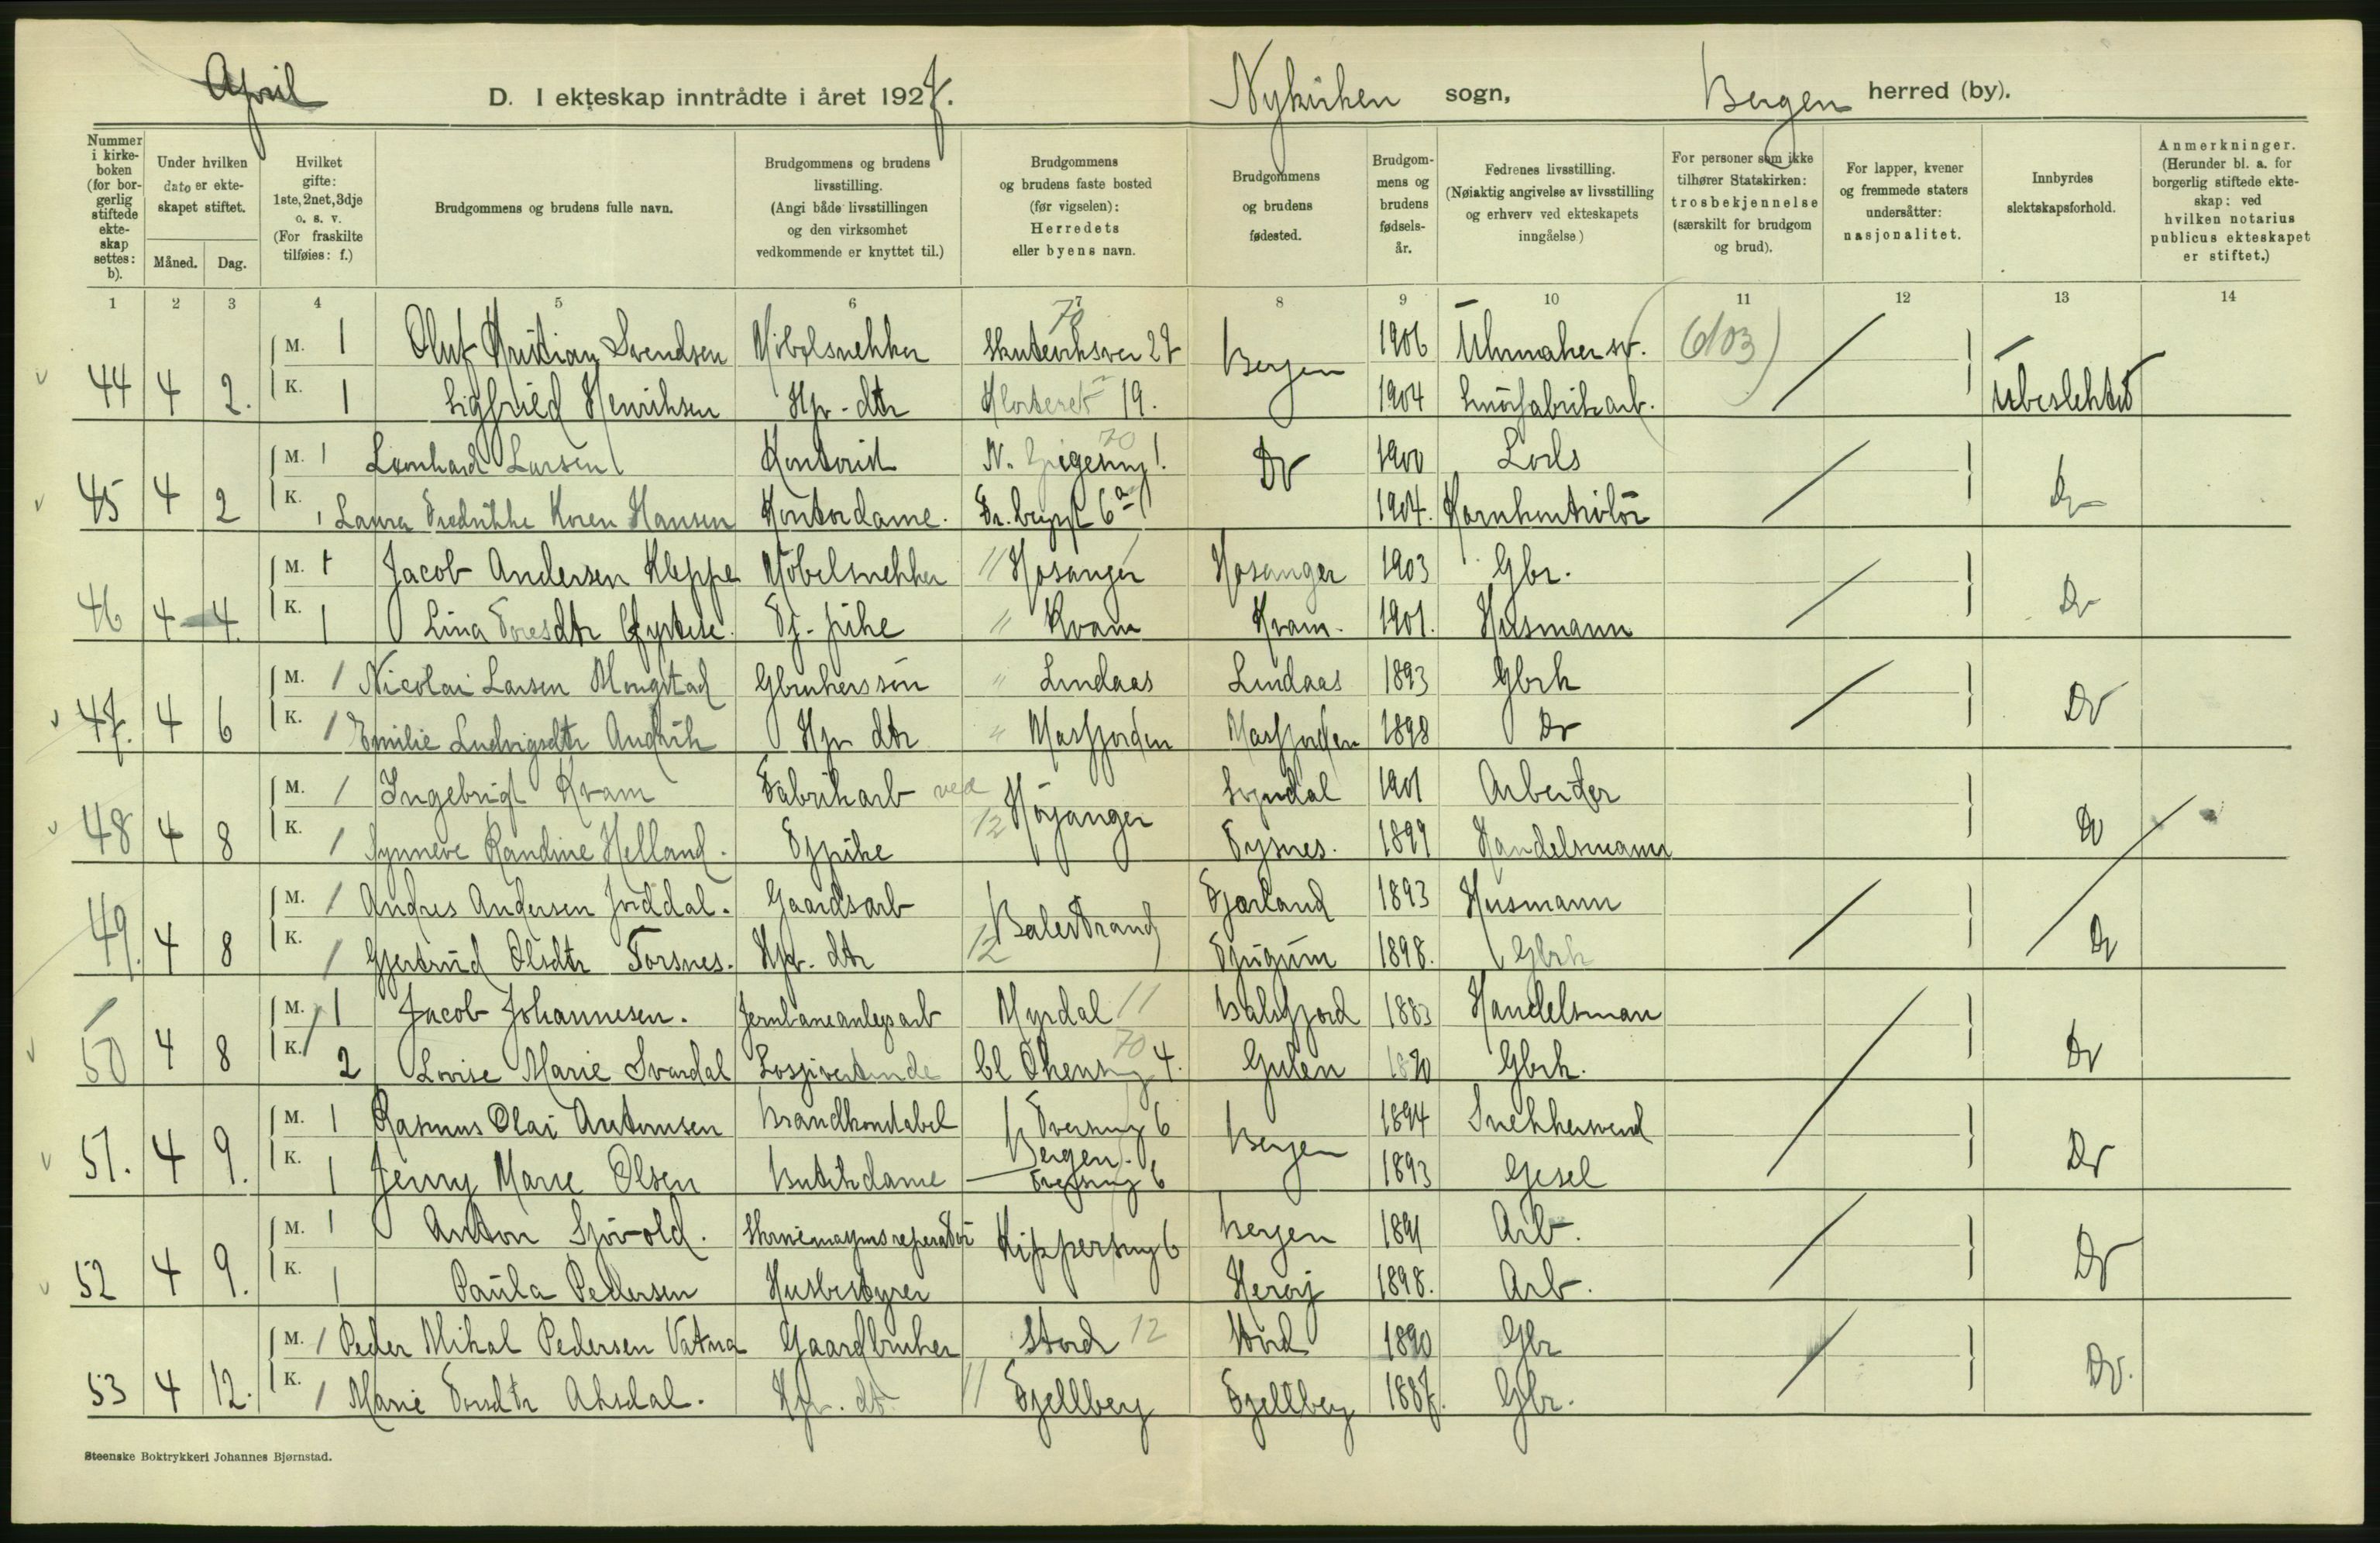 April D. I ekteskap inntrådte i året 1927. Nykirken sogn, Bergen herred (by).
Nummer i kirkeboken (for borgerlig stiftede ekteskap settes: b).
Under hvilken dato er ekteskapet stiftet.
Måned. Dag.
Hvilket gifte: 1ste, 2net, 3dje o. s. v. (For fraskilte tilføies: f.)
Brudgommens og brudens fulle navn.
Brudgommens og brudens livsstilling. (Angi både livsstillingen og den virksomhet vedkommende er knyttet til.)
Brudgommens og brudens faste bosted (før vigselen): Herredets eller byens navn.
Brudgommens og brudens fødested.
Brudgommens og brudens fødselsår.
Fedrenes livsstilling. (Nøiaktig angivelse av livsstilling og erhverv ved ekteskapets inngåelse.)
For personer som ikke tilhører Statskirken: trosbekjennelse (særskilt for brudgom og brud).
For lapper, kvener og fremmede staters undersåtter: nasjonalitet.
Innbyrdes slektskapsforhold.
Anmerkninger. (Herunder bl. a. for borgerlig stiftede ekteskap: ved hvilken notarius publicus ekteskapet er stiftet.)
1 2 3 4 5 6 7 8 9 10 11 12 13 14
70
M. 1 Oluf Kristian Svendsen Möbelsnekker Skuteviksvei 27 Bergen 1906 Uhrmakersv. (6/03)
44 4 2. K. 1 Sigfried Henriksen Hjv-dtr Klosteret 19. 1904 Smörfabrikarb. Ubeslektet
70
M. 1 Leonhard Larsen Kontorist N. 1. Do 1900 Lods
45 4 2 K. 1 Laura Fredrikke Koren Hansen Kontordame. 6a 1904. Kornkontrolör Do
M. 1 Jacob Andersen Kleppe Möbelsnekker 11 Hosanger Hosanger 1903 Gbr.
46 4 4. K. 1 Lina Toresdtr Tj-pike 11 Kvam Kvam. 1901. Husmann Do
M. 1 Nicolai Larsen Mongstad Gbrukerssön " Lindaas Lindaas 1893 Gbrk
47. 4 6 K. 1 Emilie Ludvigsdtr Andvik Hjv dtr " Masfjorden Masfjorden 1898 Do Do
M. 1 Ingebrigt Kvam Fabrikarb ved 12 Höyanger Sogndal 1901 Arbeider
48 4 8 K. 1 Synneve Randine Helland. Tjpike Tysnes. 1899 Handelsmann Do
M. 1 Andres Andersen Jorddal. Gaardsarb 12 Balestrand Fjærland 1893 Husmann
49. 4 8 K. 1 Gjertrud Olsdtr Torsnes. Hjv. dtr Tjugum 1898. Gbrk Do
M. 1 Jacob Johannesen. Jernbaneanlegsarb Myrdal 11 Balsfjord 1883 Handelsman
70
50 4 8 K. 2 Lovise Marie Svardal Losjivertinde 4. Gulen 1890 Gbrk. Do
M. 1 Rasmus Olai Antonisen Brandkonstabel Tversmug 6 Bergen 1894 Snekkersvend
Bergen.
51. 4 9. K. 1 Jenny Marie Olsen Butikdame Tversmug 6 1893 Gesel Do
M. 1 Anton Sjövold. Skrivemaskinsreperatör Kippersmug 6 Bergen 1891 Arb.
52 4 9. K. 1 Paula Pedersen Husbestyrer Heröy 1898. Arb. Do
M. 1 Peder Mikal Pedersen Vatna Gaardbruker Stord 12 Stord 1890 Gbr
53 4 12. K. 1 Marie Torsdtr Aksdal. Hjv. dtr 11 Fjellberg Fjellberg 1887. Gbr. Do.
Steenske Boktrykkeri Johannes Bjørnstad.